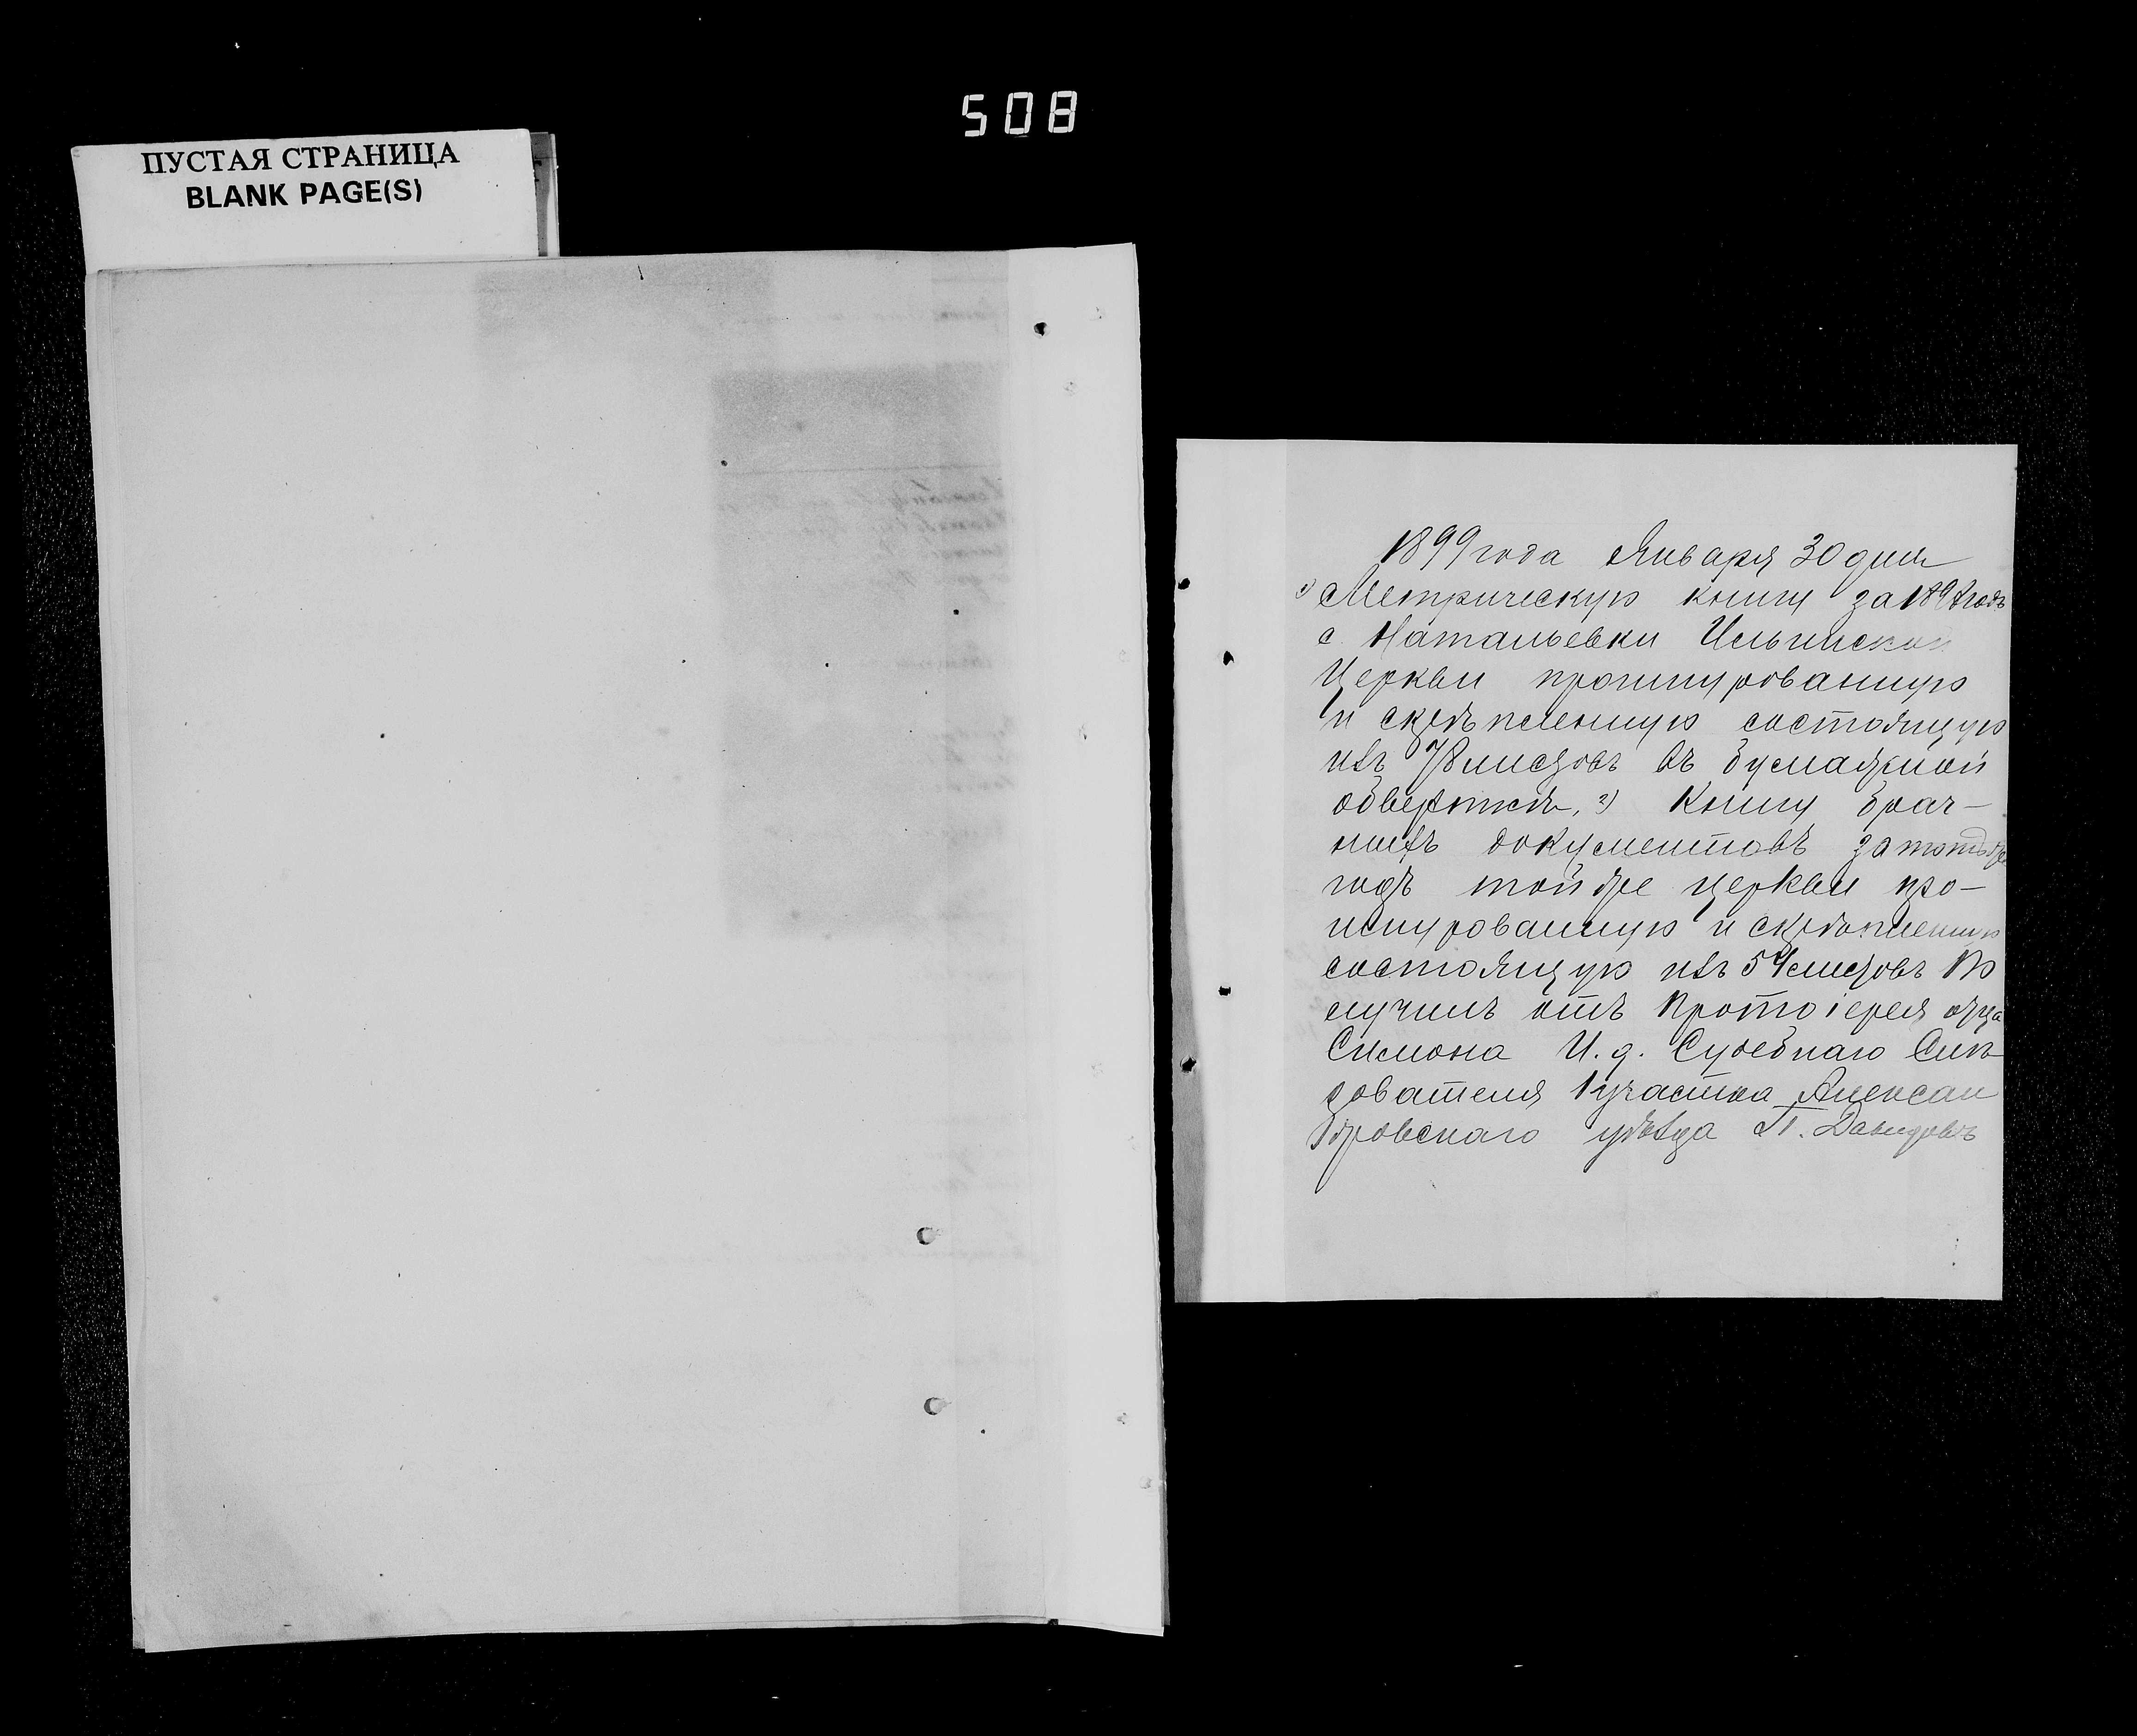 508
ПУСТАЯ СТРАНИЦА
BLANK PAGE(S)
1899 года Января 30 дня
1) Метрическую книгу за 1897 годъ
с. Натальевки Ильинской
Церкви прошнурованную
и скрѣпленную состоящую
изъ 78 листовъ въ бумажной
обверткѣ, 2) Книгу брач-
ныхъ документовъ за тотъ же
годъ той же церкви про-
шнурованную и скрѣпленную
состоящую изъ 54 листовъ По
лучилъ отъ Протоіерея отца
Симона И. д. Судебнаго Слѣ
дователя 1 участка Алексан
дровскаго уѣзда П. Давидовъ